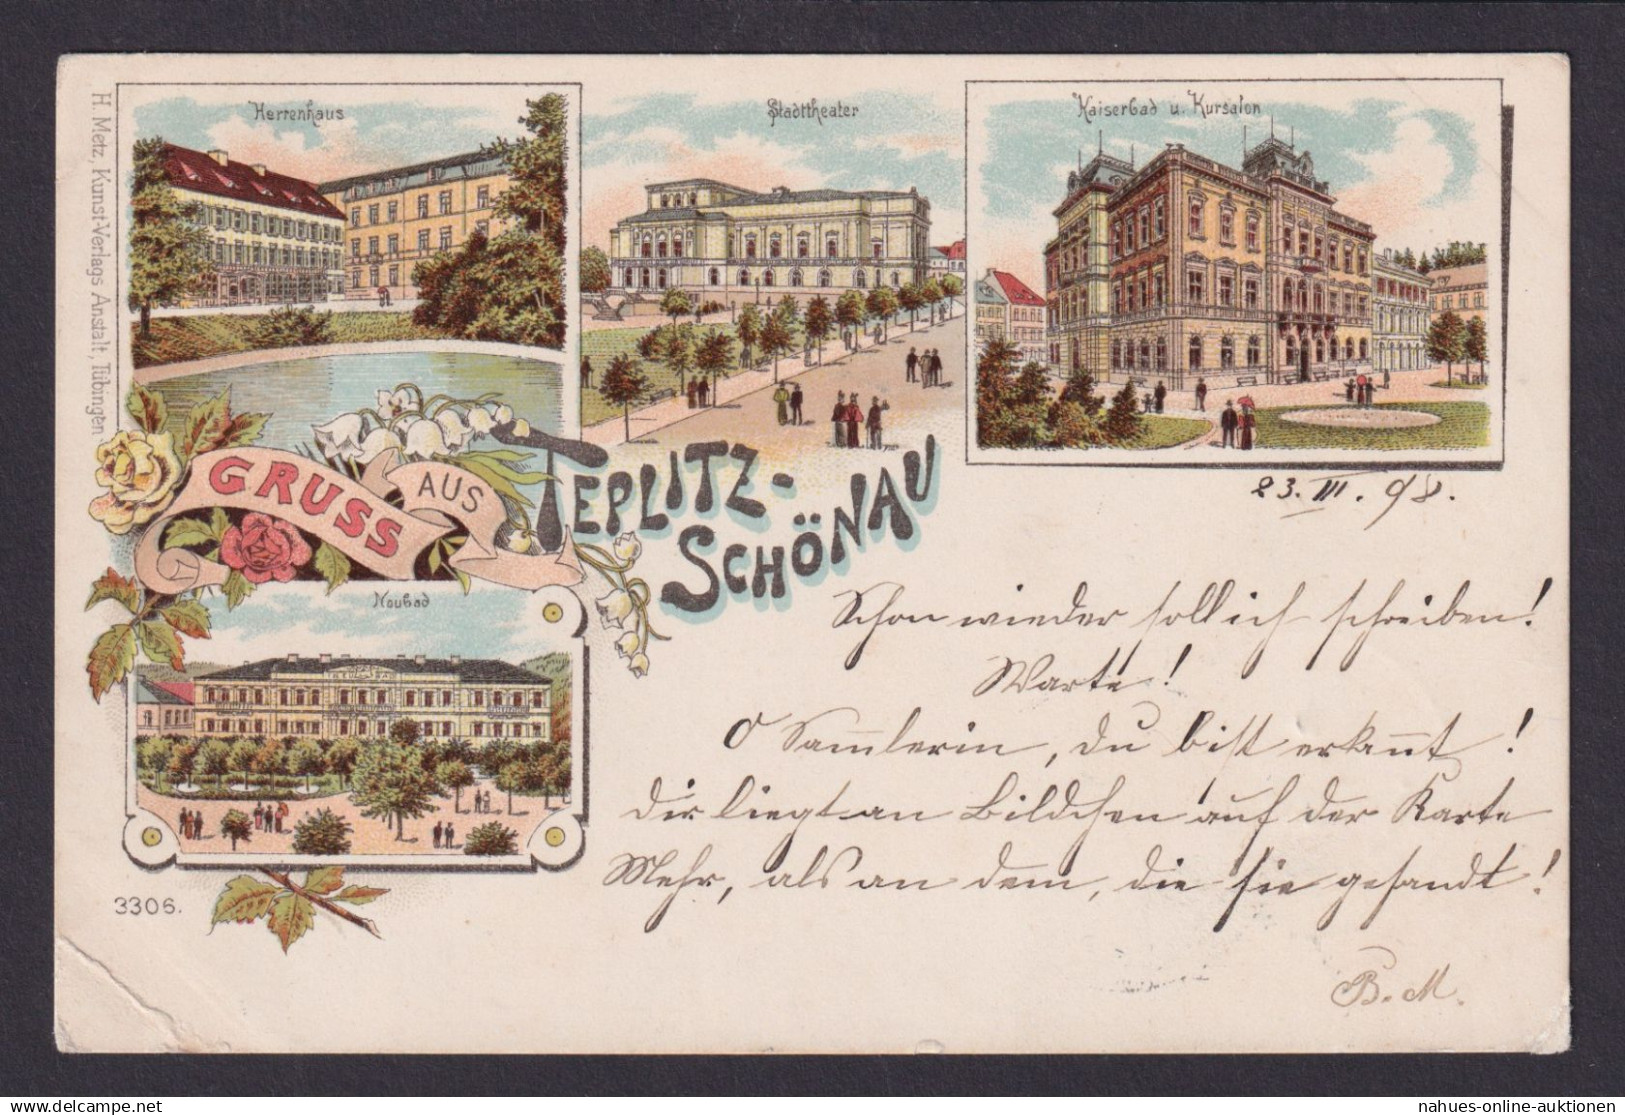 H. Metz, Kunst-Verlags Anstalt, Tübingen
Herrenhaus
Stadttheater
Kaiserbad u. Kursalon
GRUSS AUS
TEPLITZ-
SCHÖNAU
Neubad
3306.
23. III. 98.
Schon wieder soll ich schreiben!
Warte!
O Sammlerin, du bist erkannt!
Dir liegt an Bildchen auf der Karte
Mehr, als an dem, die sie gesandt!
B. M.
nahues-online-auktionen
delcampe.net